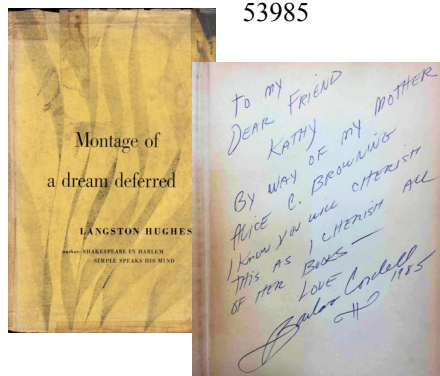 53985
Montage of
a dream deferred
LANGSTON HUGHES
author: SHAKESPEARE IN HARLEM
SIMPLE SPEAKS HIS MIND
TO MY
DEAR FRIEND
KATHY
BY WAY OF MY MOTHER
ALICE C. BROWNING
I KNOW YOU WILL CHERISH
THIS AS I CHERISH ALL
OF HER BOOKS—
LOVE
Barbara Cordell
1985